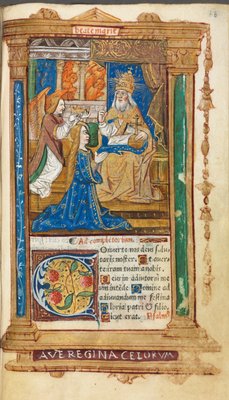 beate marie
Ad completorium.
Conuerte nos deus salu
taris noster. Et auerte
iram tuam a nobis.
Deus in adiutoriū me
um intēde Domine ad
adiuuandum me festina
Gloria patri & filio.
Sicut erat.
AVE REGINA CELORVM